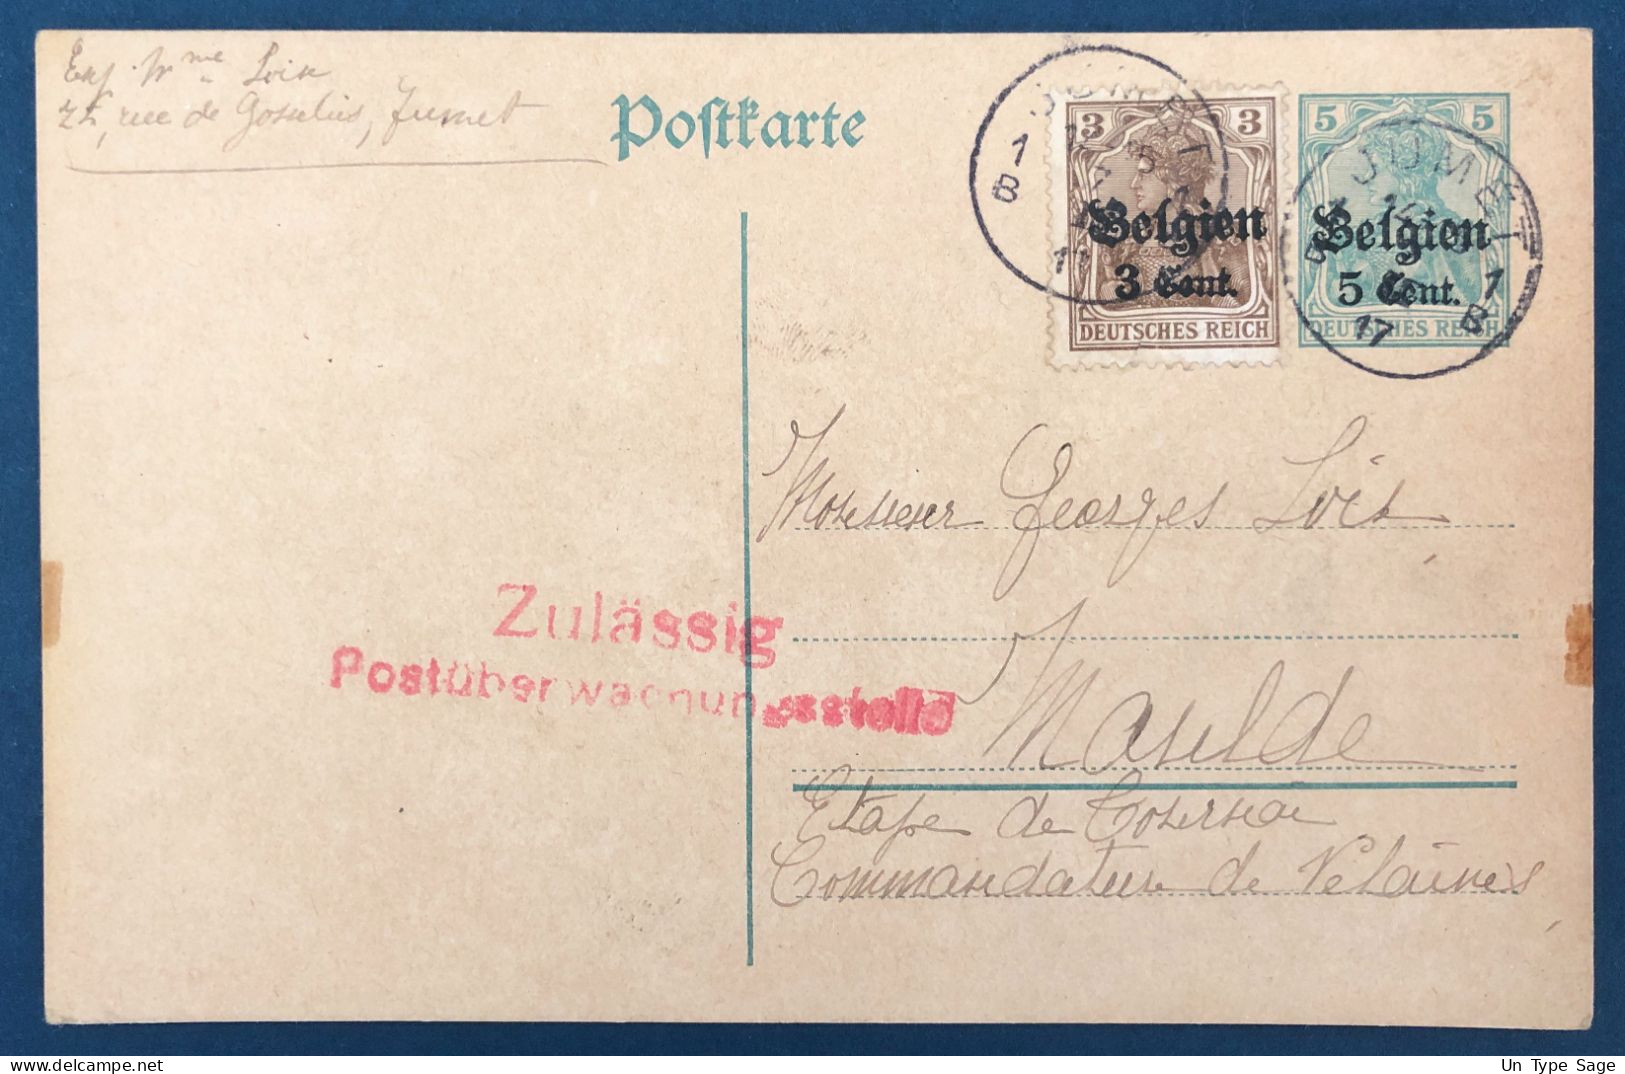 Exp. Mme Loix
rue de Gosselies, Jumet
Postkarte
JUMET
1
B
17
3 3
Belgien
3 Cent.
DEUTSCHES REICH
5 5
JUMET
Belgien
5 Cent.
1
B
17
DEUTSCHES REICH
Monsieur Georges Loix
Zulässig
Postüberwachungsstelle
Maulde
Etape de Tournai
Commandature de Velaines
Un Type Sage